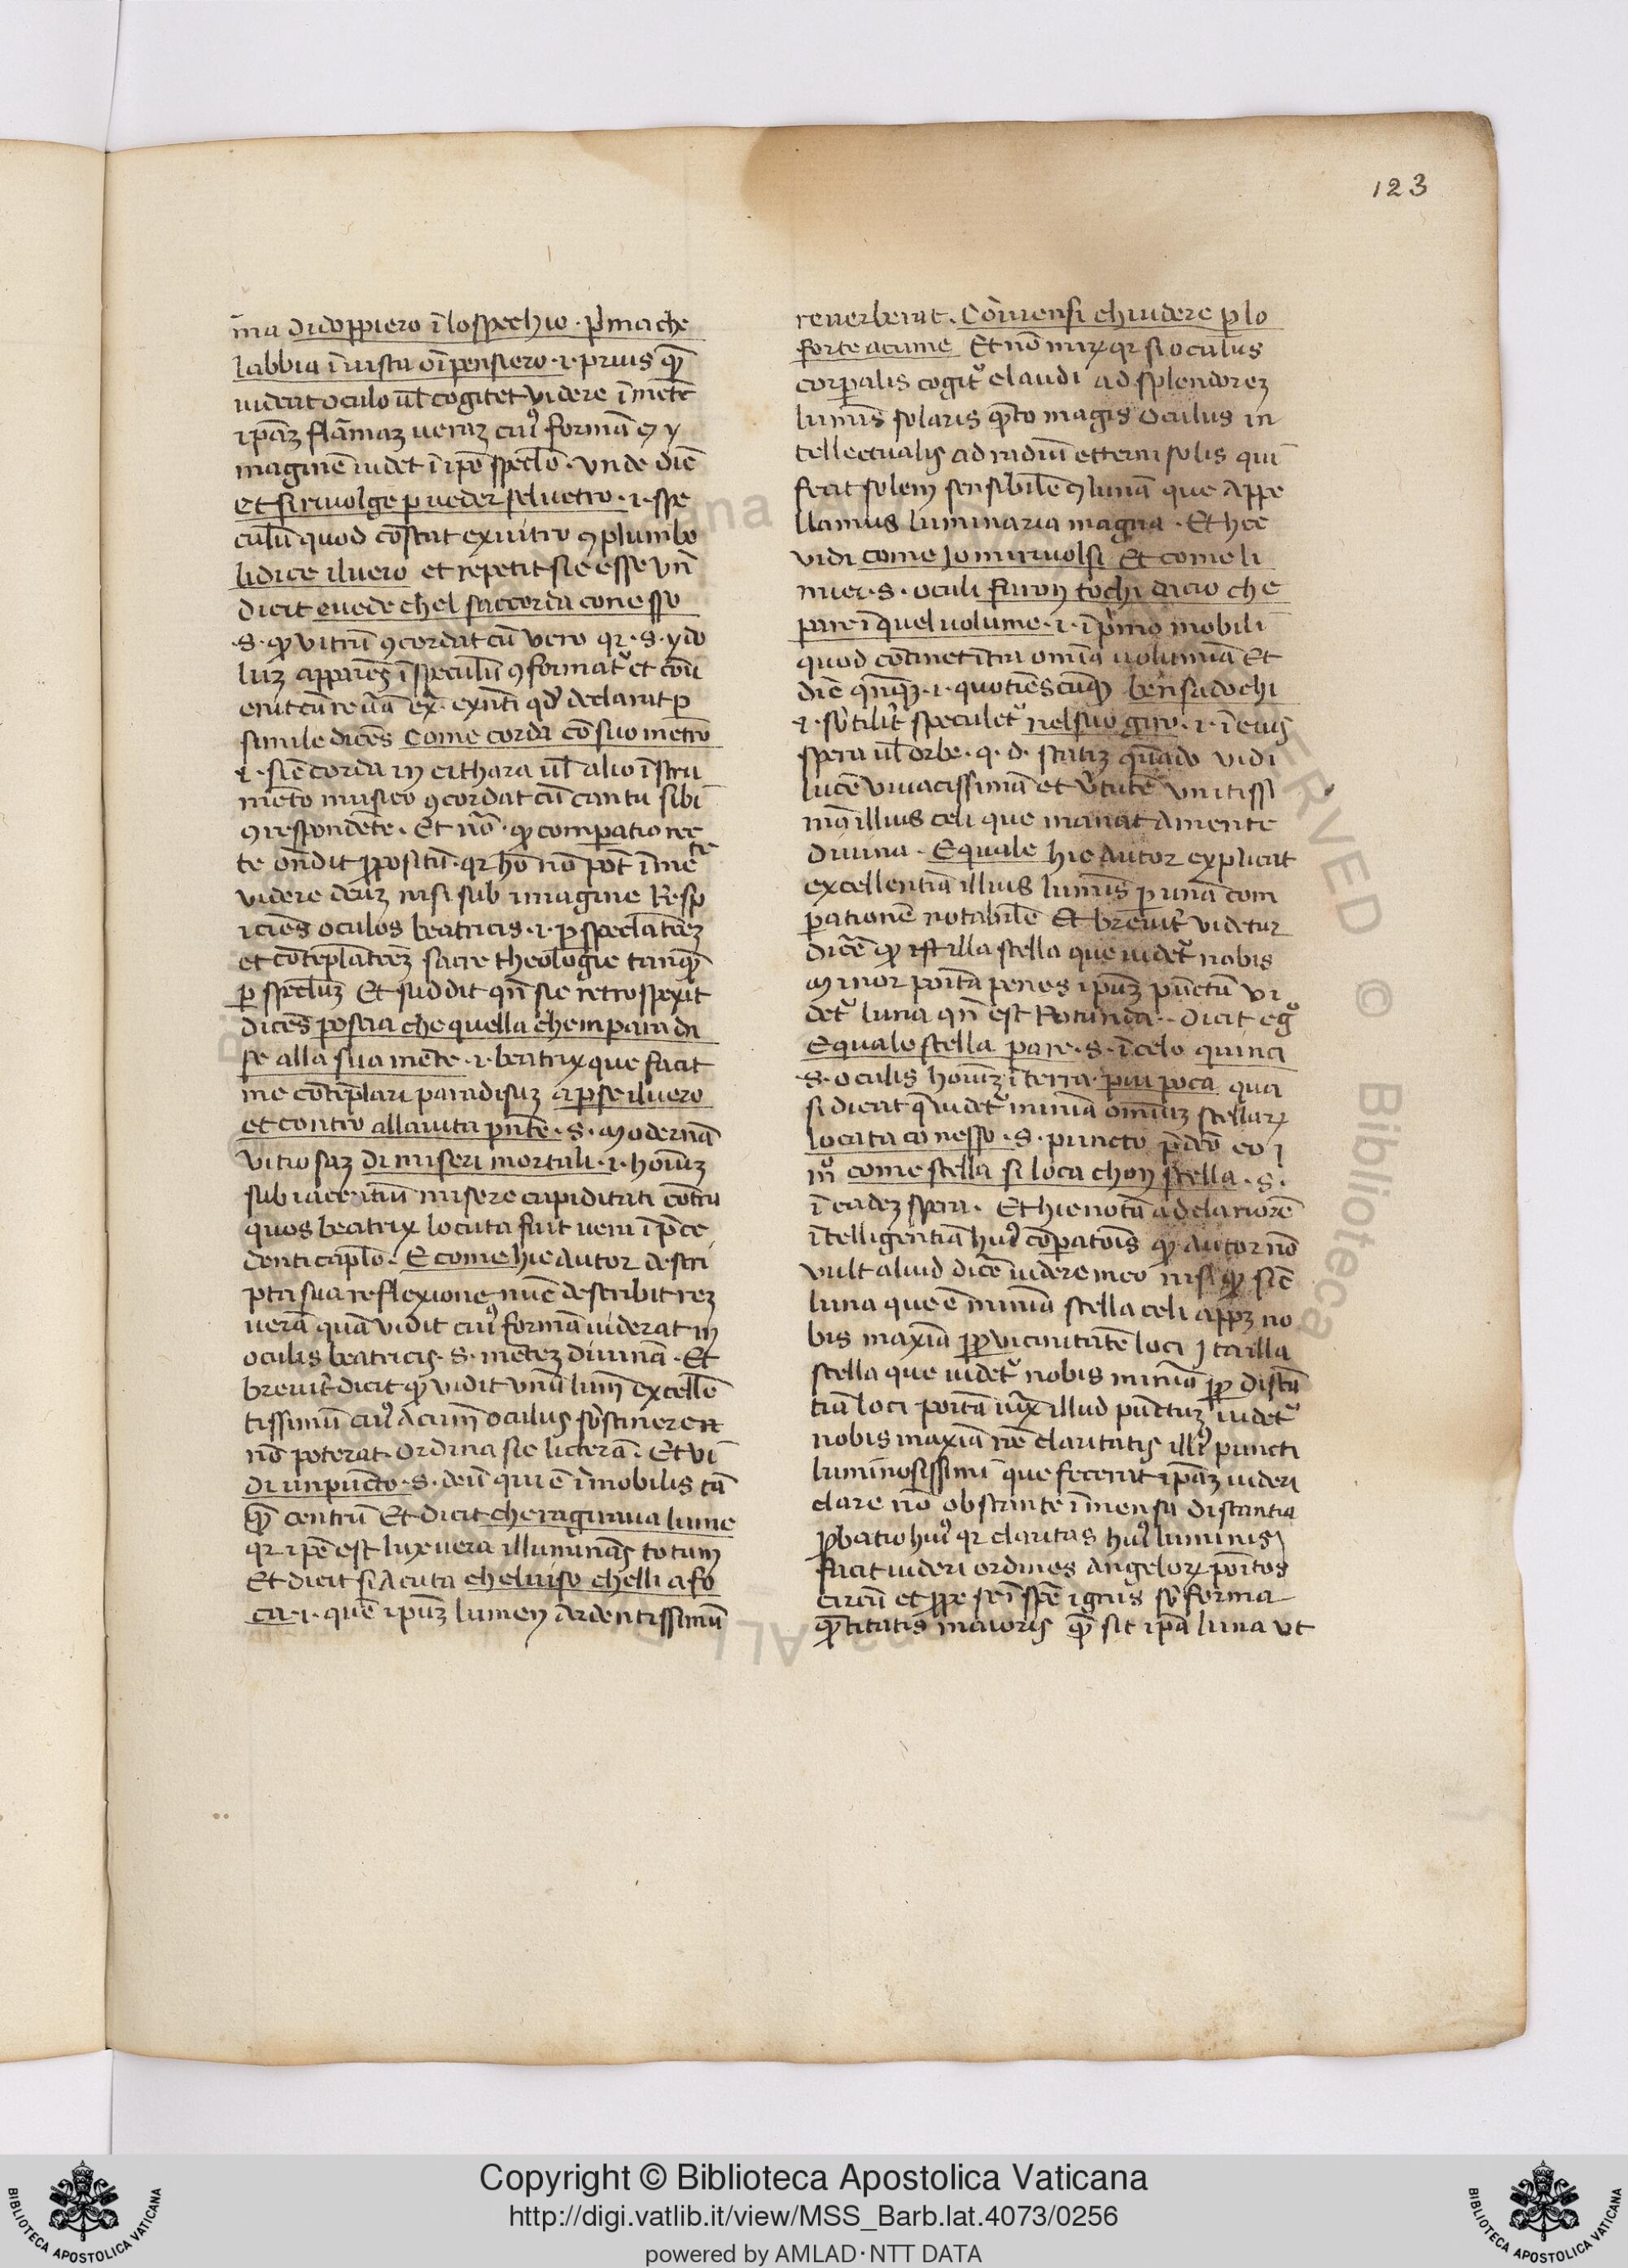 123
ma di doppiero ī lo spechio · pͥma che
labbia ī uista oī pensiero ·i· prius qͣꝫ
uiderit oculo ul̄ cogitet videre ī mēte
ip̄aꝫ flāmaꝫ ueraꝫ cuiꝰ formā ⁊ y
maginē uidet ī ip̄o spec̄lo · vnde dic̄
et si riuolge p ueder sel uetro ·i· spe
cul̄ū quod cōstat ex uitro ⁊ plumbo
li dice il uero et repetit sic esse vn̄
dicit e uede chel saccorda con esso
·s· ꝙ vitrū ꝯcordat cū vero qꝛ ·s· ydo
luꝫ apparēs ī speculū ꝯformat᷑ et cōu
enit cū re
simile dicēs Come corda cō suo metro
·i· sic̄ corda in cithara ul̄ alio īstru
mēto musico ꝯcordat cū cantu sibi
ꝯrespondēte · Et nō · ꝙ compatio rec
te ōndit ꝓpositū · qꝛ hō nō pōt ī mēte
videre deuꝫ nisi sub imagine Resp
iciēs oculos beatricis ·i· ꝑ spec̄latōeꝫ
et cōtēpl̄atōeꝫ sacre theologie tanqͣꝫ
ꝑ spec̄luꝫ Et suddit qn̄ sic retrospexit
dicēs poscia che quella che impara di
se alla sua mēte ·i· beatrix que facit
me cōtēplari paradisuꝫ aperse il uero
et contro alla uita pn̄te ·s· modernā
vitiosaꝫ di miseri mortali ·i· hoīuꝫ
subiacentiū misere cupiditati cōtra
quos beatrix locuta fuit uera ī p̄ce
denti cap̄lo · E come hic autor descri
pta sua reflexione nūc describit reꝫ
uerā quā vidit cuiꝰ formā uiderat in
oculis beatricis ·s· mēteꝫ diuinā · Et
breuit᷑ dicit ꝙ vidit vnū lum̄ excellē
tissimū cuiꝰ acum̄ oculus sustinere
nō poterat · Ordina sic licterā · Et vi
di un pūcto ·s· deū qui ē īmobilis tā
qͣꝫ centrū Et dicit che ragiaua lume
qꝛ ip̄e est lux uera illuminās totum
Et dicit si acuta che luiso chelli afo
ca ·i· quē ip̄uꝫ lumen ardentissimū
reuerberat · Cōuiensi chiudere p lo
forte acume Et nō miꝝ qꝛ si oculus
corꝑalis cogit᷑ claudi ad splendoreꝫ
lumīs solaris qͣꝫto magis oculus in
tellectualis ad radiū etterni solis qui
fecit solem sensibilē ⁊ lunā que appe
llamus luminaria magna · Et hec
vidi come Jo mi riuolsi Et come li
miei ·s· oculi furon tochi da cio che
pare ī quel uolume ·i· ī pͥmo mobili
quod cōtinet ītra omīa uolumīa Et
dic̄ qn̄qꝫ ·i· quotiēscūqꝫ ben sadochi
·i· sͧtilit᷑ speculet᷑ nel suo giro ·i· ī eius
spera ul̄ orbe · q· d· statiꝫ qūado vidi
lucē viuacissimā et v᷑tutē vnitissi
mā illius celi que manat a mente
diuina · E quale hic autor explicat
excellentiā illius lumīs ꝑ unā com
ꝑationē notabilē Et breuit᷑ videtur
dicē ꝙ illa stella que uidet᷑ nobis
minor poīta penes ip̄uꝫ pūctū vi
det᷑ luna qn̄ est Rotunda · dicit ega
E qualo stella pare ·s· ī celo quinci
·s· oculis hoīuꝫ ī terra · piu poca qua
si dicat q̄ uidet᷑ minīa omīuꝫ stellaꝝ
locata con esso ·s· puncto
come stella si loca chon stella ·s·
ī eadeꝫ spera · Et hic nota ad clariorē
ītelligentiā huiꝰ cōpatōis ꝙ autor nō
vult aliud dicē uidere meo nisi ꝙ sic̄
luna que ē minīa stella celi appꝫ no
bis maxīa ꝓp vicinitatē loci Jta illa
stella que uidet᷑ nobis minīa ꝓp distā
tiā loci poīta iuxͣ illud pūctuꝫ uidet᷑
nobis maxīa rōe claritatis illiꝰ puncti
luminosissimi que fecerit ip̄aꝫ uideri
clare nō obstante īmensa distantia
ꝓbatio huiꝰ qꝛ claritas huiꝰ luminis
facit uideri ordines angeloꝝ poītos
circū et prope igniis sͧ forma
qͣꝫtitatis maioris qͣꝫ sit ip̄a luna vt
Copyright © Biblioteca Apostolica Vaticana
http://digi.vatlib.it/view/MSS_Barb.lat.4073/0256
powered by AMLAD·NTT DATA
BIBLIOTECA APOSTOLICA VATICANA
BIBLIOTECA APOSTOLICA VATICANA